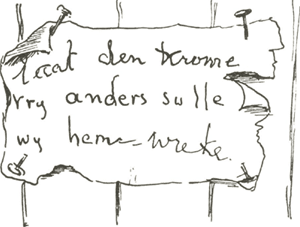 laat den krome
vry anders sulle
wy heme wreke.